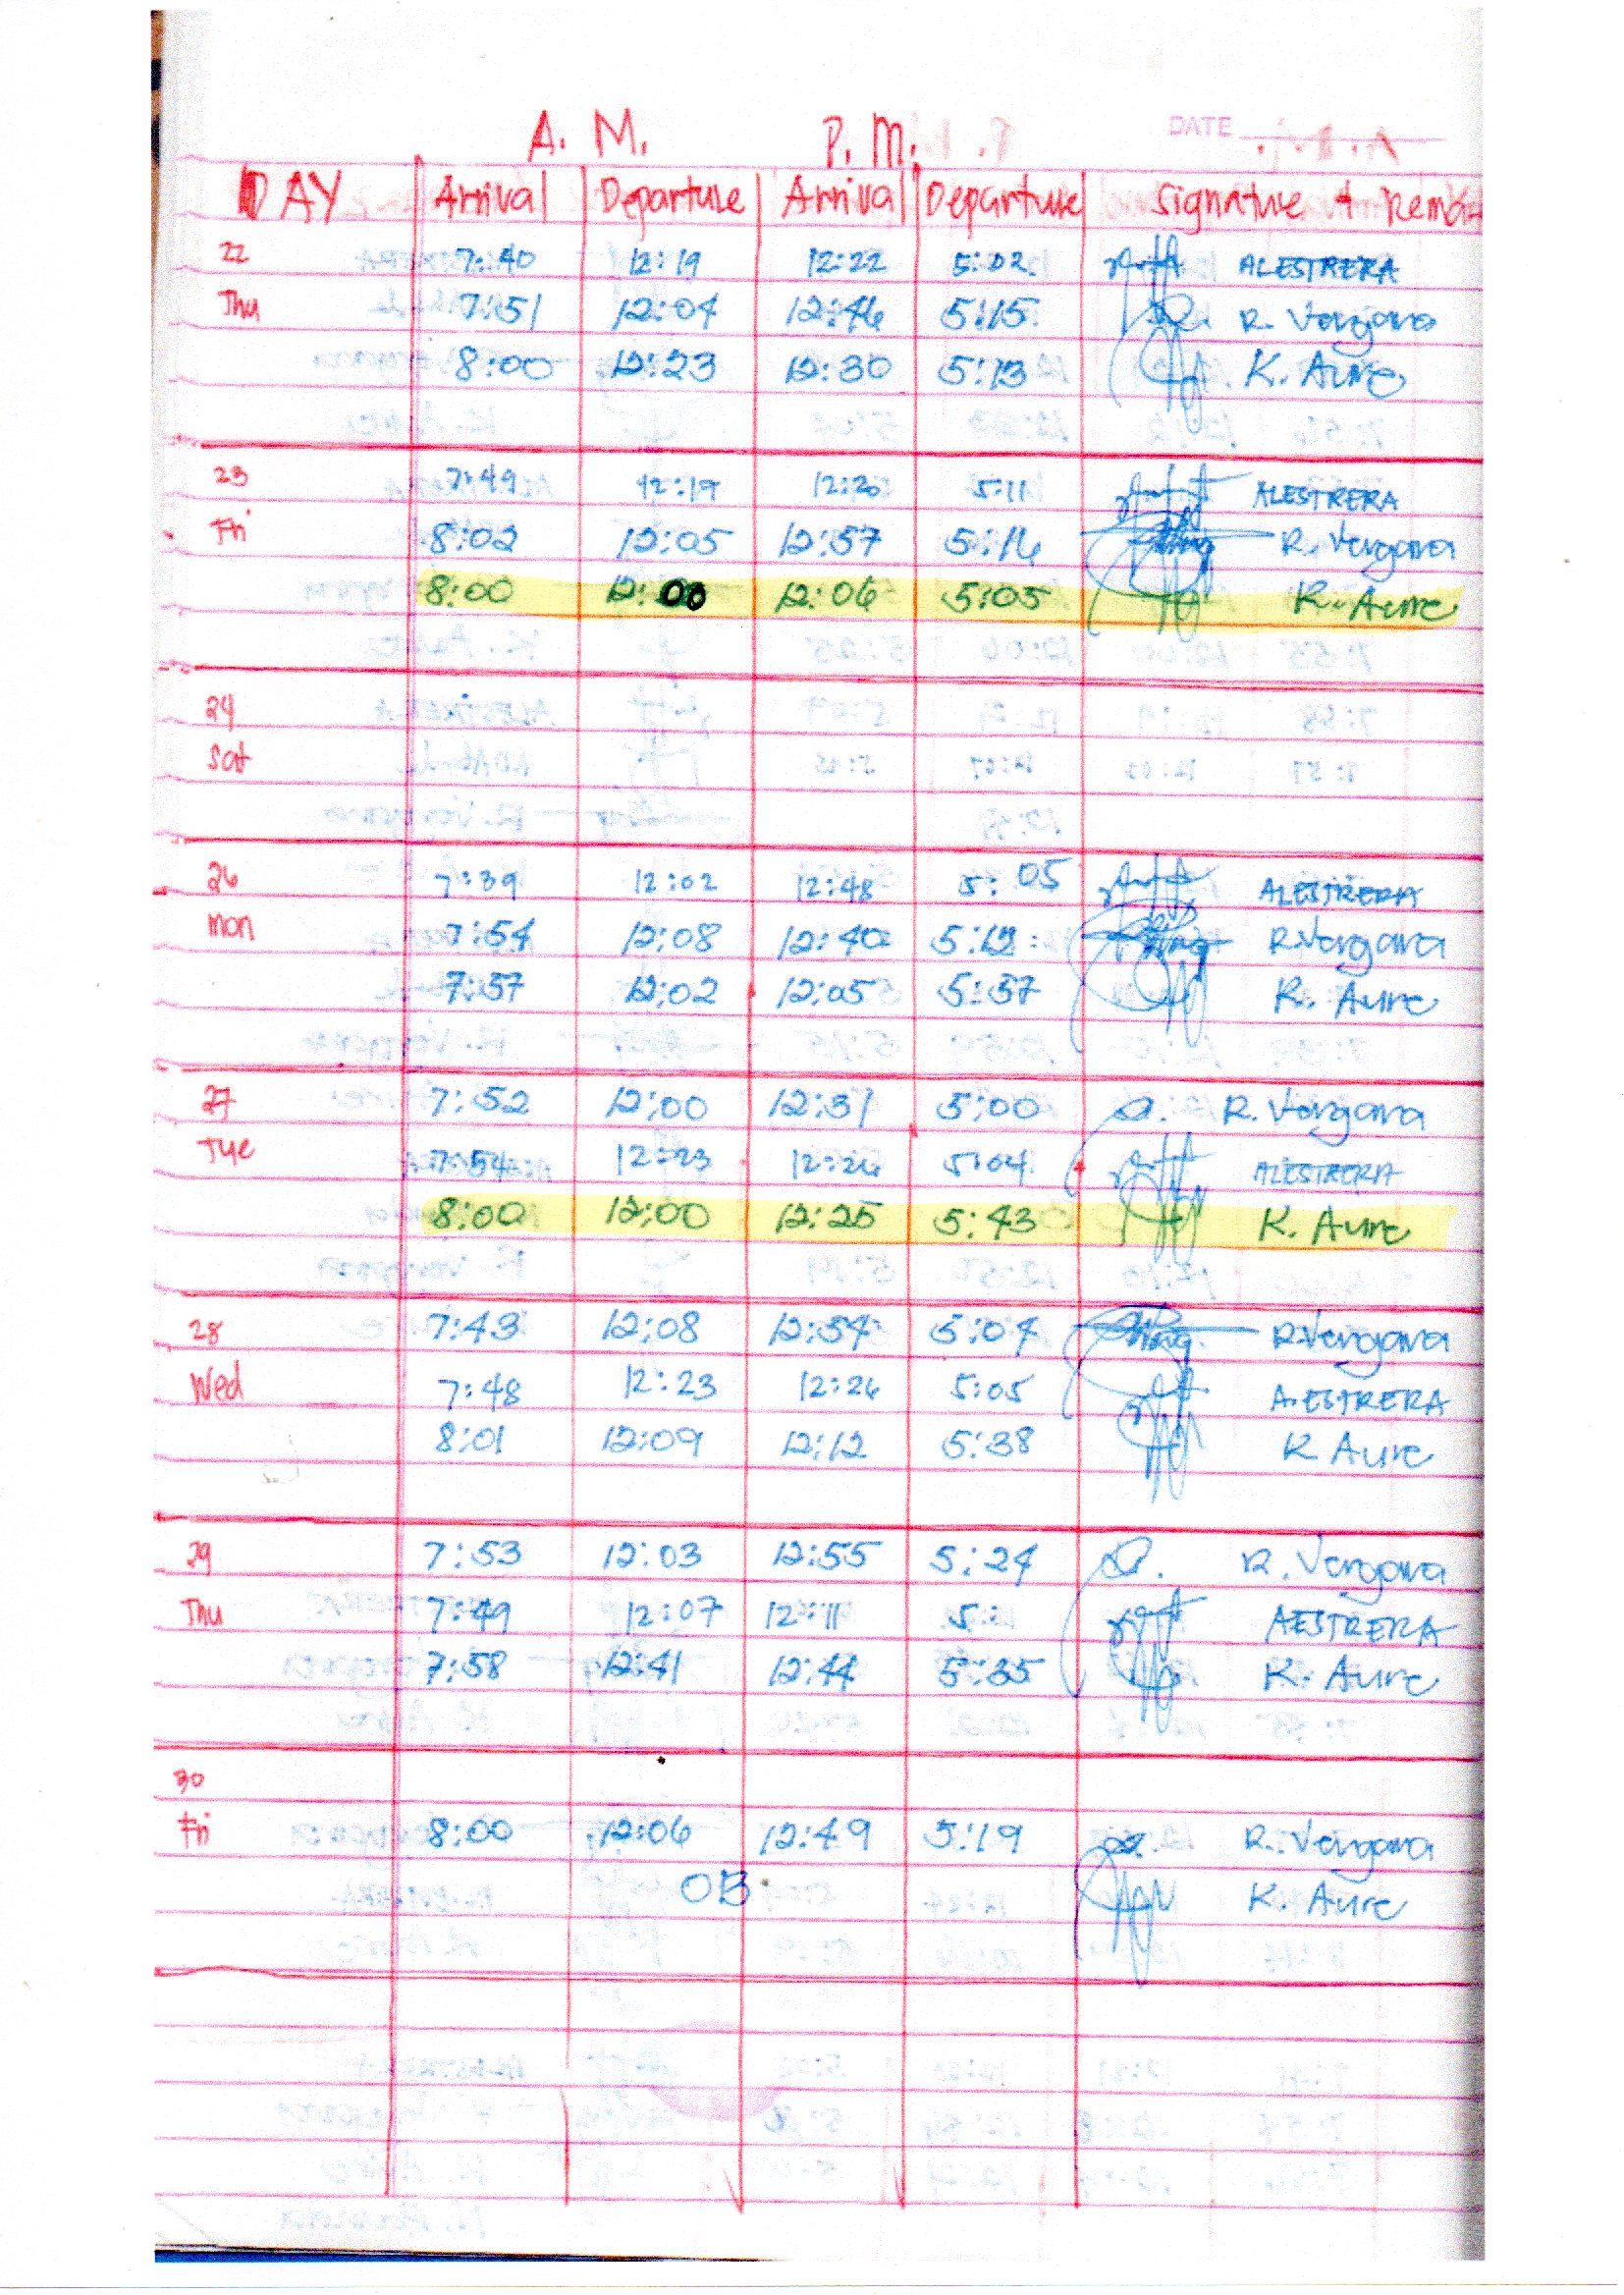 DATE
A. M. P. M.
DAY Arrival Departure Arrival Departure Signature & Remark
22 7:40 12:19 12:22 5:02 ALESTRERA
Thu 7:51 12:04 12:46 5:15 R. Vergara
8:00 12:23 12:30 5:13 K. Aure
23 7:49 12:19 12:20 5:11 ALESTRERA
Fri 8:02 12:05 12:57 5:16 R. Vergara
8:00 12:00 12:06 5:05 K. Aure
24
Sat
26 7:39 12:02 12:48 5:05 ALESTRERA
Mon 7:54 12:08 12:40 5:12 R. Vergara
7:57 12:02 12:05 5:37 K. Aure
27 7:52 12:00 12:31 5:00 R. Vergara
Tue 7:54 12:23 12:26 5:04 ALESTRERA
8:00 12:00 12:25 5:43 K. Aure
28 7:43 12:08 12:54 5:04 R. Vergara
Wed 7:48 12:23 12:26 5:05 A.ESTRERA
8:01 12:09 12:12 5:38 K Aure
29 7:53 12:03 12:55 5:24 R. Vergara
Thu 7:49 12:07 12:11 5: AESTRERA
7:58 12:41 12:44 5:35 K. Aure
30
Fri 8:00 12:06 12:49 5:19 R. Vergara
OB K. Aure